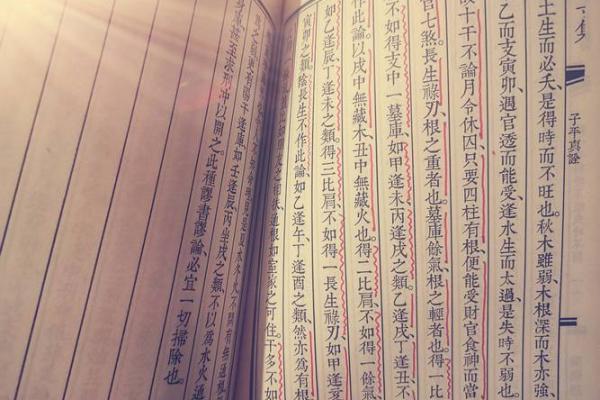 子平真詮
土生而必夭、是得時而不旺也。秋木雖弱、木根深而木亦強、
乙而支寅卯、遇官透而能受、逢水生而太過、是失時不弱也。
故十干不論月令休囚、只要四柱有根、便能受財官食神而當
官七煞。長生祿刃、根之重者也。墓庫餘氣、根之輕者也。得一比
不如得支中一墓庫、如甲逢未丙逢戌之類。乙逢戌丁逢丑、不
作此論、以戌中無藏木、丑中無藏火也。得二比肩、不如得一餘氣、
如乙逢辰、丁逢未之類。得三比肩、不如得一長生祿刃、如甲逢亥
寅卯之類。陰長生不作此論、如乙逢午、丁逢酉之類、然亦為有根、
通根如室家之可住。干多不如
水火、不問有無通根
之弱。更有陽干逢庫、如壬逢辰、丙坐戌之類、不以為水火通
甚至求刑沖以開之。此種謬書謬論、必宜一切掃除也。